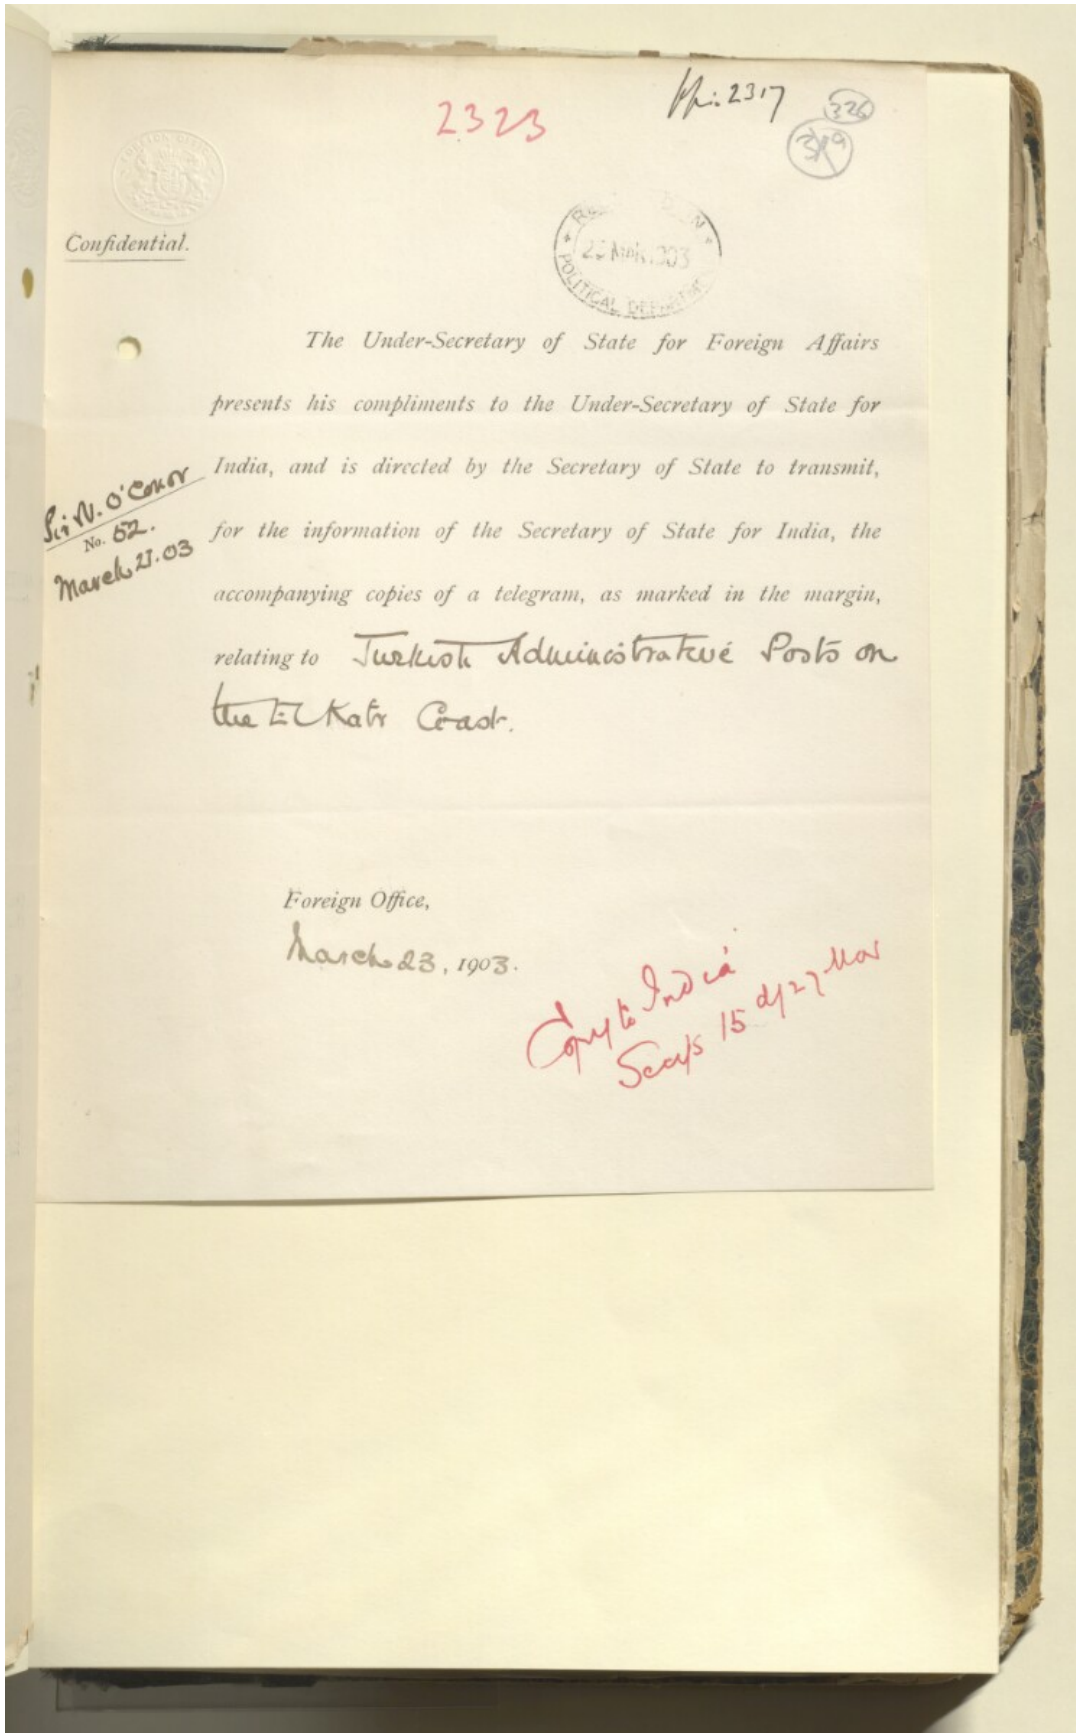 2323
2317
326
FOREIGN OFFICE
Confidential.
MAR 1903
POLITICAL DEPARTMENT
The Under-Secretary of State for Foreign Affairs
presents his compliments to the Under-Secretary of State for
India, and is directed by the Secretary of State to transmit,
for the information of the Secretary of State for India, the
accompanying copies of a telegram, as marked in the margin,
relating to Turkish Administrative Posts on
the El Katr Coast.
Sir N. O'Conor
No. 52.
March 21.03
Foreign Office,
March 23, 1903.
Copy to India
Secy's 15 d/27 Mar